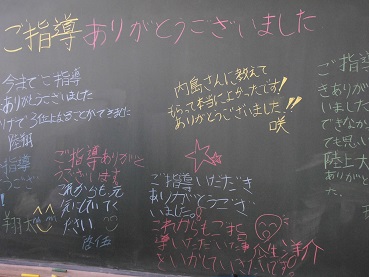 ご指導ありがとうございました
今までご指導
ありがとうございました
けで3位よなることができました
陸翔
内島さんに教えて
もらって本当によかったです!
ありがとうございました!!
咲
ご指導
きありが
いました
できなか
ても思い
陸上大
ありがと
た
指導
うござい
翔太
ご指導ありがと
うございます
これからも元
気でいて
ださい
啓伍
ご指導いただき
ありがとうござ
いました。
これからもこ
事いただいた事
といかしていきたいです
人生
洋介